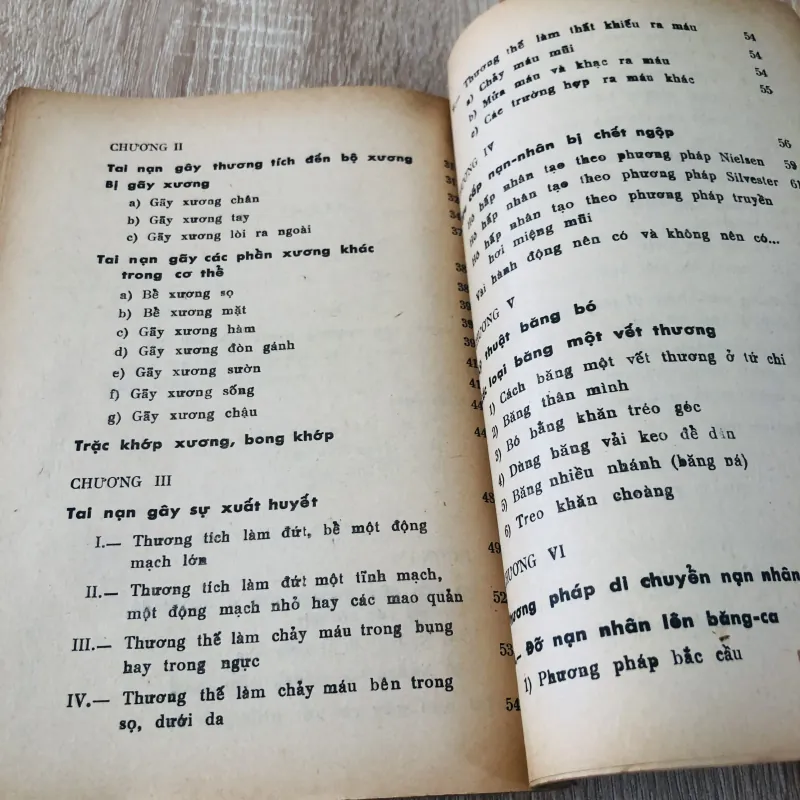 CHƯƠNG II
Tai nạn gây thương tích đến bộ xương
Bị gãy xương
a) Gãy xương chân
b) Gãy xương tay
c) Gãy xương lòi ra ngoài 37
Tai nạn gãy các phần xương khác
trong cơ thể 38
a) Bể xương sọ
b) Bể xương mặt 39
c) Gãy xương hàm 39
d) Gãy xương đòn gánh
e) Gãy xương sườn
f) Gãy xương sống
g) Gãy xương chậu 44
Trặc khớp xương, bong khớp 44
CHƯƠNG III
Tai nạn gây sự xuất huyết 48
I.— Thương tích làm đứt, bể một động
mạch lớn 49
II.— Thương tích làm đứt một tĩnh mạch,
một động mạch nhỏ hay các mao quản 52
III.— Thương thế làm chảy máu trong bụng
hay trong ngực 53
IV.— Thương thế làm chảy máu bên trong
sọ, dưới da 54
Thương thế làm thất khiếu ra máu 54
a) Chảy máu mũi 54
b) Mửa máu và khạc ra máu 54
c) Các trường hợp ra máu khác 55
IV
cấp nạn-nhân bị chết ngộp 56
hấp nhân tạo theo phương pháp Nielsen 59
hấp nhân tạo theo phương pháp Silvester 61
hấp nhân tạo theo phương pháp truyền
hơi miệng mũi
Vài hành động nên có và không nên có...
V
thuật băng bó
loại băng một vết thương
1) Cách băng một vết thương ở tứ chi
2) Băng thân mình
3) Bó bằng khăn tréo góc
4) Dùng băng vải keo để dán
5) Băng nhiều nhánh (băng ná)
6) Treo khăn choàng
ƯƠNG VI
ương pháp di chuyển nạn nhân
— Đỡ nạn nhân lên băng-ca
1) Phương pháp bắc cầu